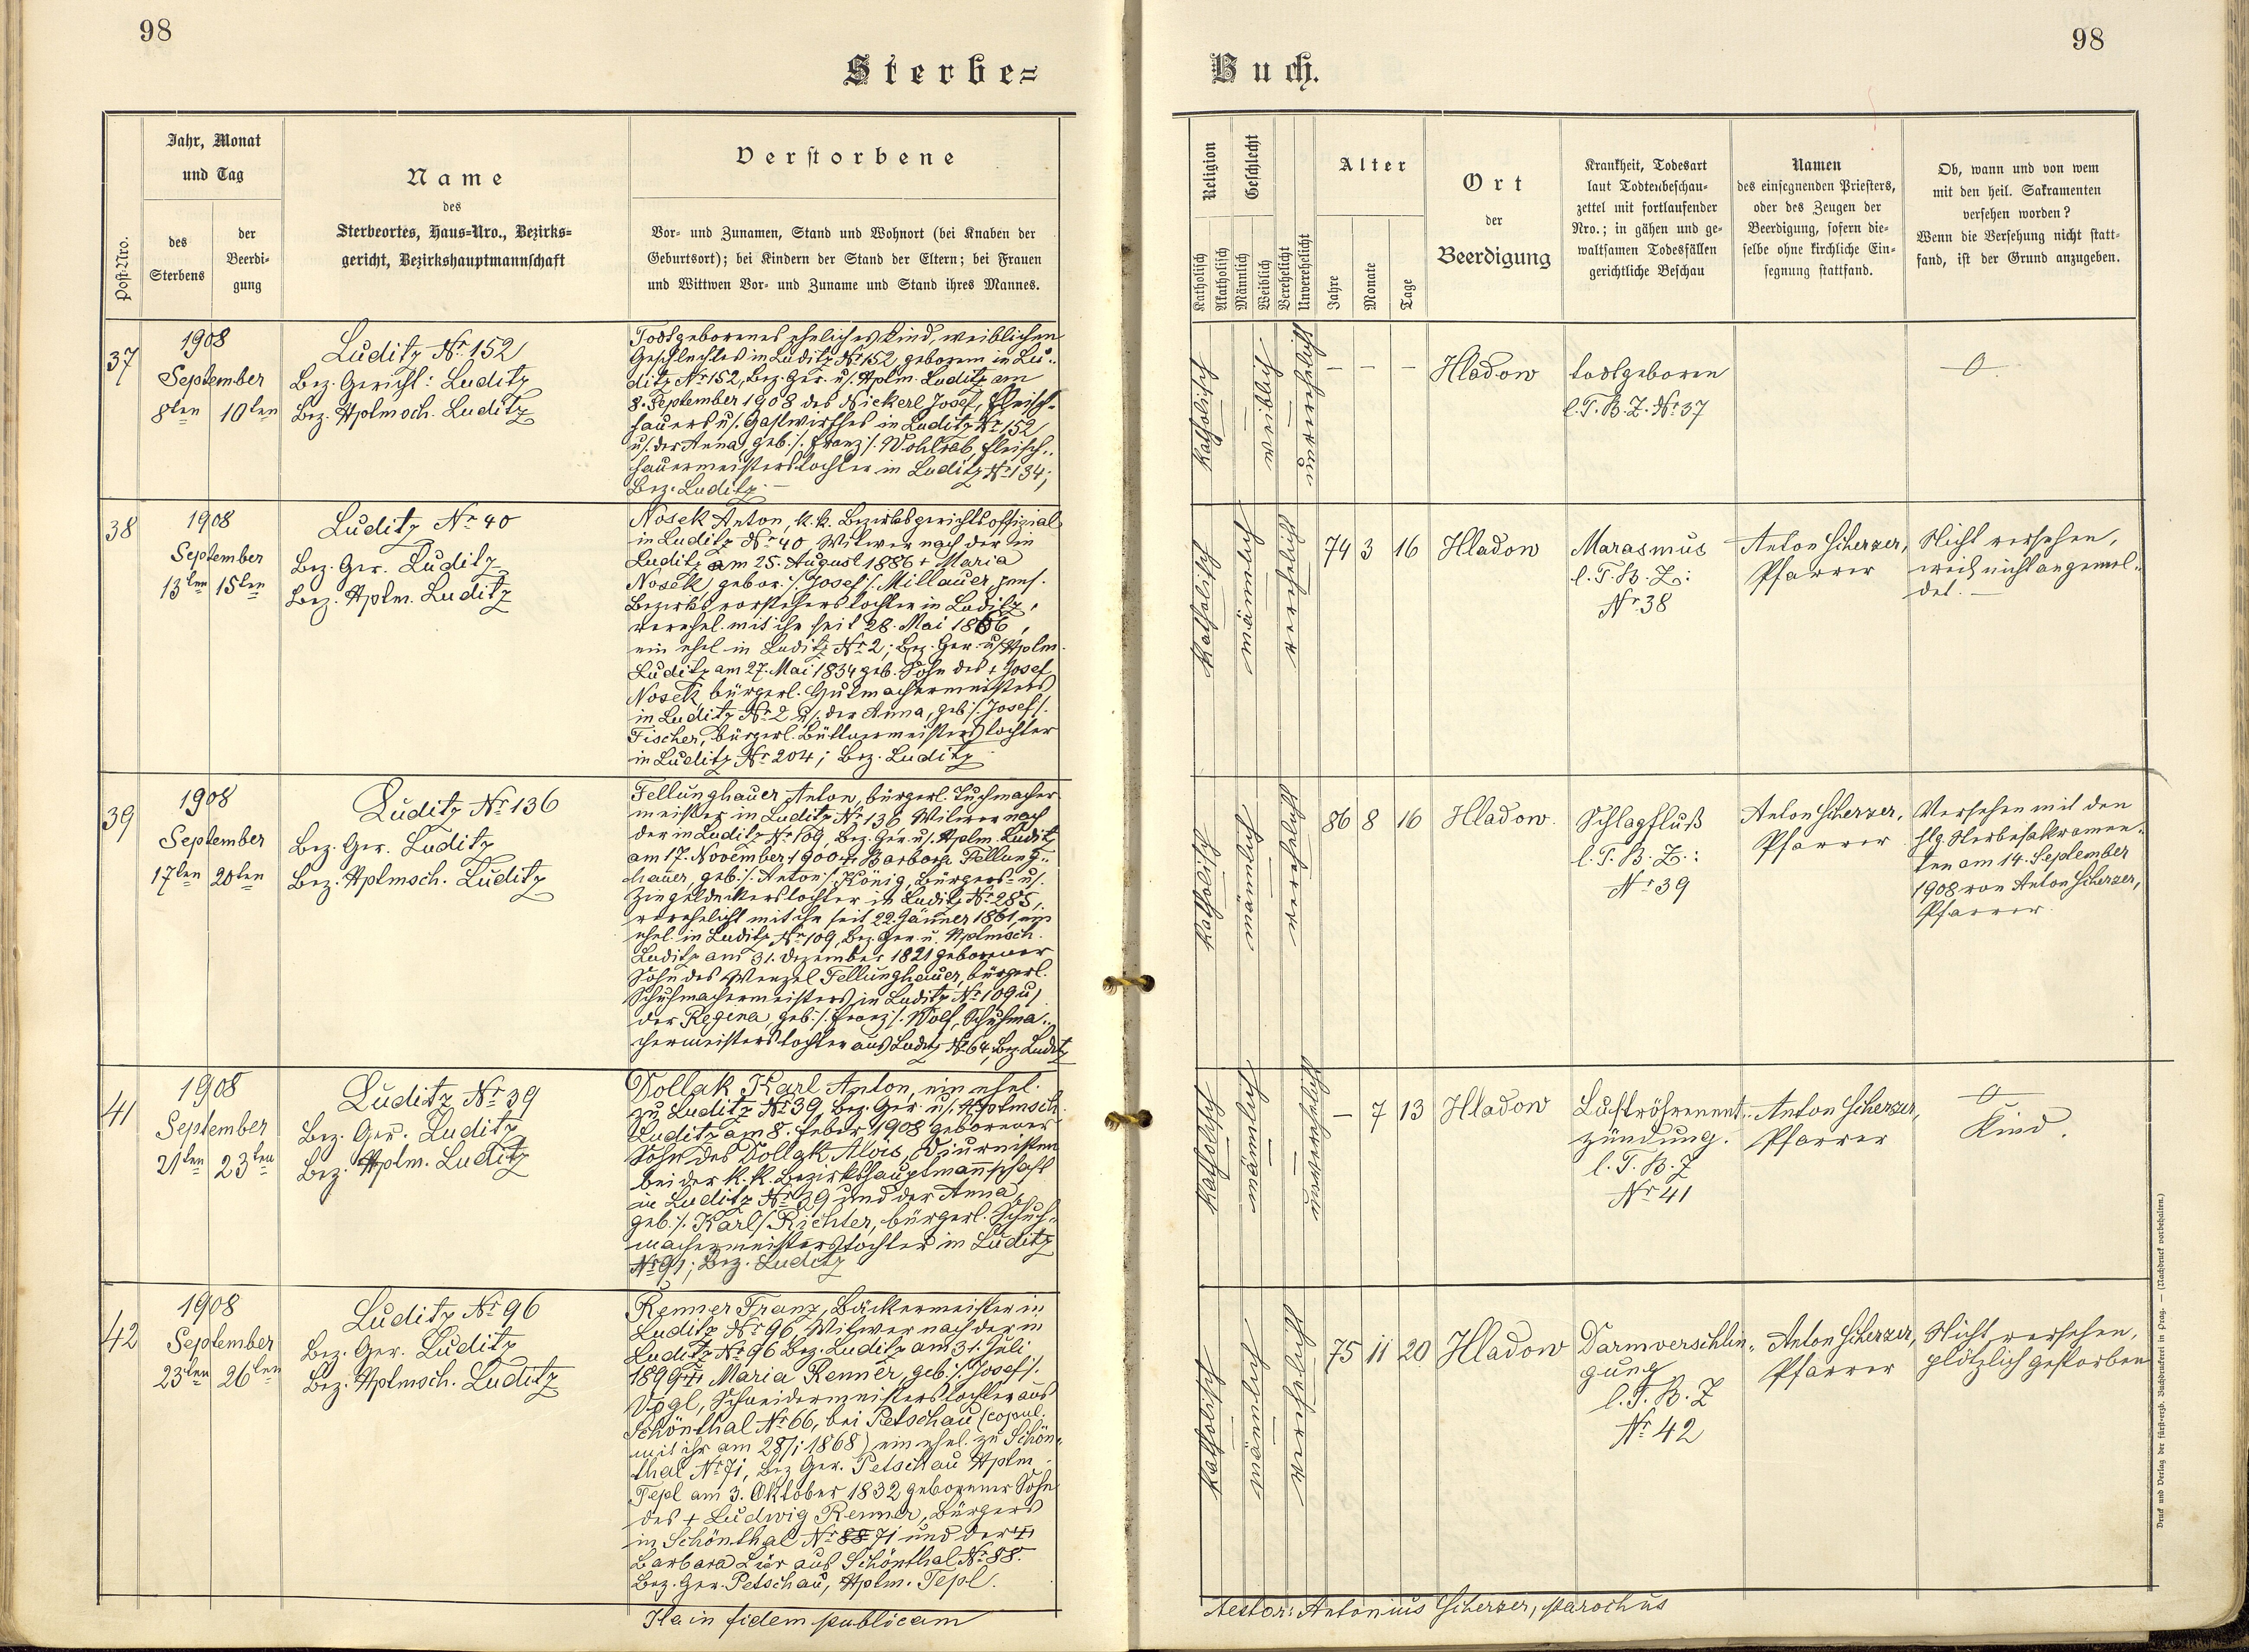 98
98
Sterbe=
Buch.
Post-Nro.
Jahr, Monat
und Tag
des
Sterbens
der
Beerdi-
gung
Name
des
Sterbeortes, Haus-Nro., Bezirks-
gericht, Bezirkshauptmannschaft
Verstorbene
Vor- und Zunamen, Stand und Wohnort (bei Knaben der
Geburtsort); bei Kindern der Stand der Eltern; bei Frauen
und Wittwen Vor- und Zuname und Stand ihres Mannes.
Religion
Katholisch
Akatholisch
Geschlecht
Männlich
Weiblich
Verehelicht
Unverehelicht
Alter
Jahre
Monate
Tage
Ort
der
Beerdigung
Krankheit, Todesart
laut Todtenbeschau-
zettel mit fortlaufender
Nro.; in gähen und ge-
waltsamen Todesfällen
gerichtliche Beschau
Namen
des einsegnenden Priesters,
oder des Zeugen der
Beerdigung, sofern die-
selbe ohne kirchliche Ein-
segnung stattfand.
Ob, wann und von wem
mit den heil. Sakramenten
versehen worden?
Wenn die Versehung nicht statt-
fand, ist der Grund anzugeben.
37
1908
September
8ten 10ten
Luditz Nr. 152
Bez. Gericht: Luditz
Bez. Hptmsch. Luditz
Todtgeborenes eheliches Kind, weiblichen
Geschlechtes in Luditz Nr 152, geboren in Lu-
ditz Nr 152, Bez. Ger. u/. Hptm. Luditz am
8. September 1908 des Nickerl Josef, Fleisch-
hauers u/. Gastwirthes in Luditz Nr 152
u/. der Anna, geb. /. Franz /. Wohlrab, Fleisch-
hauermeisterstochter in Luditz Nr 134;
Bez. Luditz. –
katholisch
weiblich
unverehelicht
– – –
Hladow
todtgeboren
l. T. B. Z. Nr 37
0
38
1908
September
13ten 15ten
Luditz Nr 40
Bez. Ger. Luditz
Bez. Hptm. Luditz
Nosek Anton, k. k. Bezirksgerichtsoffizial
in Luditz Nr 40 Witwer nach der in
Luditz am 25. August 1886 + Maria
Nosek, gebor. /. Josef /. Millauer, pens.
Bezirksvorstehers tochter in Luditz,
verehel. mit ihr seit 28. Mai 1866,
ein ehel. in Luditz Nr 2; Bez. Ger. u/. Hptm.
Luditz am 27. Mai 1834 geb. Sohn des + Josef
Nosek, bürgerl. Hutmachermeisters
in Luditz Nr 2 u/. der Anna, geb. /. Josef /.
Fischer, bürgerl. Büttnermeisters tochter
in Luditz Nr 204; Bez. Luditz
katholisch
männlich
verehelicht
74 3 16
Hladow
Marasmus
l. T. B. Z.:
Nr 38
Anton Scherzer,
Pfarrer
Nicht versehen,
weil nicht angemel-
det. –
39
1908
September
17ten 20ten
Luditz Nr 136
Bez. Ger. Luditz
Bez. Hptmsch. Luditz
Fellunghauer Anton, bürgerl. Tuchmacher-
meister in Luditz Nr 136 Witwer nach
der in Luditz Nr 109, Bez. Ger. u/. Hptm. Luditz
am 17. November 1900 + Barbara Fellung-
hauer, geb. /. Anton /. König, Bürgers- u/.
Ziegeldeckers tochter in Luditz Nr 285,
verehelicht mit ihr seit 22. Jänner 1861, ein
ehel. in Luditz Nr 109, Bez. Ger. u. Hptmsch.
Luditz am 31. Dezember 1821 geborener
Sohn des Wenzel Fellunghauer, bürgerl.
Schuhmachermeisters in Luditz Nr 109 u/.
der Regina, geb. /. Franz /. Wolf, Schuhma-
chermeisters tochter aus Luditz Nr 64, Bez. Luditz
katholisch
männlich
verehelicht
86 8 16
Hladow.
Schlagfluß
l. T. B. Z.:
Nr 39
Anton Scherzer,
Pfarrer
Versehen mit den
hlg. Sterbesakramen-
ten am 14. September
1908 von Anton Scherzer,
Pfarrer.
41
1908
September
21ten 23ten
Luditz Nr 39
Bez. Ger. Luditz
Bez. Hptm. Luditz
Dollak Karl Anton, ein ehel.
zu Luditz Nr 39, Bez. Ger. u/. Hptmsch.
Luditz am 8. Feber 1908 geborener
Sohn des Dollak Alois, Diurnisten
bei der k. k. Bezirkshauptmannschaft
in Luditz Nr 39 und der Anna,
geb. /. Karl /. Richter, bürgerl. Schuh-
machermeisters tochter in Luditz
Nr 91; Bez. Luditz
katholisch
männlich
unverehelicht
– 7 13
Hladow
Luftröhrenent-
zündung.
l. T. B. Z
Nr 41
Anton Scherzer,
Pfarrer
0
Kind.
42
1908
September
23ten 26ten
Luditz Nr 96
Bez. Ger. Luditz
Bez. Hptmsch. Luditz
Renner Franz, Bäckermeister in
Luditz Nr 96, Witwer nach der in
Luditz Nr 96 Bez. Luditz am 31. Juli
1899 + Maria Renner, geb. /. Josef /.
Vogl, Schneidermeisters tochter aus
Schönthal Nr 66, bei Petschau (copul.
mit ihr am 28/1 1868) ein ehel. zu Schön-
thal Nr 71, Bez Ger. Petschau Hptm.
Tepl am 3. Oktober 1832 geborener Sohn
des + Ludwig Renner, Bürgers
in Schönthal Nr 88 71 und der +
Barbara Liär aus Schönthal Nr 88.
Bez. Ger. Petschau, Hptm. Tepl.
katholisch
männlich
verehelicht
75 11 20
Hladow
Darmverschlin-
gung
l. T. B. Z
Nr 42
Anton Scherzer,
Pfarrer
Nicht versehen,
plötzlich gestorben
Ita in fidem publicam
testor: Antonius Scherzer, parochus
Druck und Verlag der fürst-erzb. Buchdruckerei in Prag. — (Nachdruck vorbehalten.)